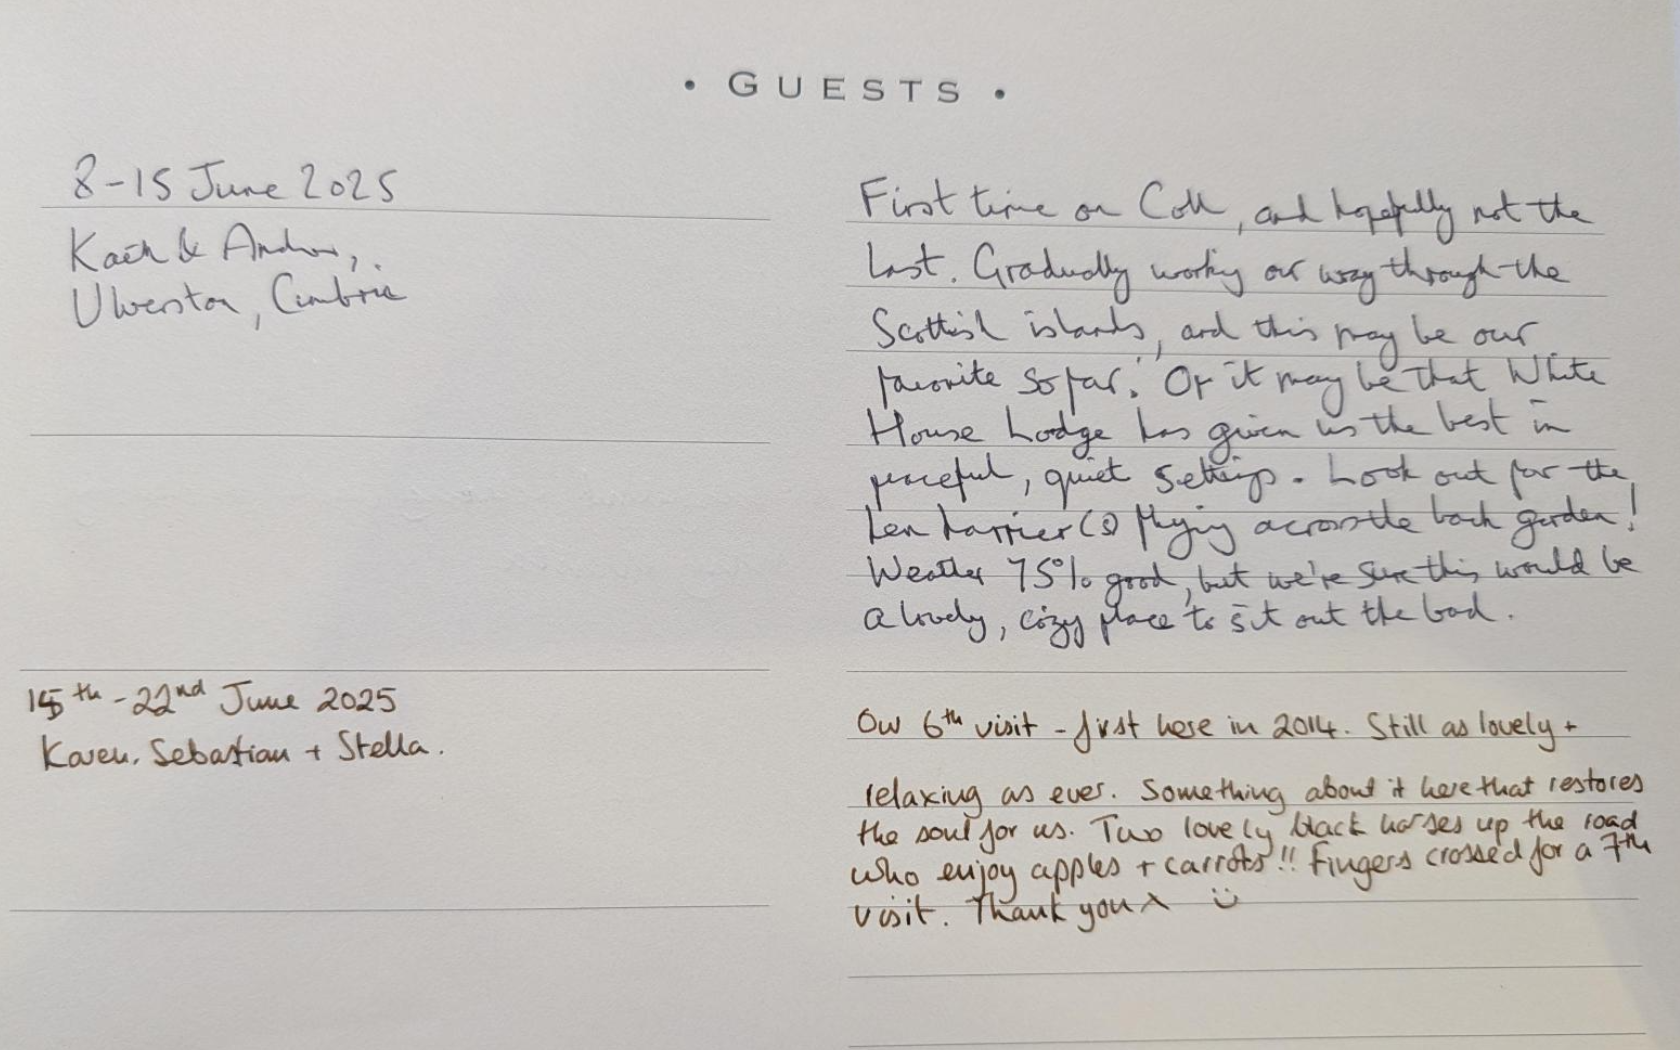 • GUESTS •
8-15 June 2025
Kath & Andrew,
Ulverston, Cumbria
First time on Coll, and hopefully not the
last. Gradually working our way through the
Scottish islands, and this may be our
favorite so far! Or it may be that White
House Lodge has given us the best in
peaceful, quiet settings. Look out for the
hen harrier(s) flying across the back garden!
Weather 75% good, but we're sure this would be
a lovely, cozy place to sit out the bad.
15th - 22nd June 2025
Karen, Sebastian + Stella.
Our 6th visit - first here in 2014. Still as lovely +
relaxing as ever. Something about it here that restores
the soul for us. Two lovely black horses up the road
who enjoy apples + carrots!! Fingers crossed for a 7th
visit. Thank you x